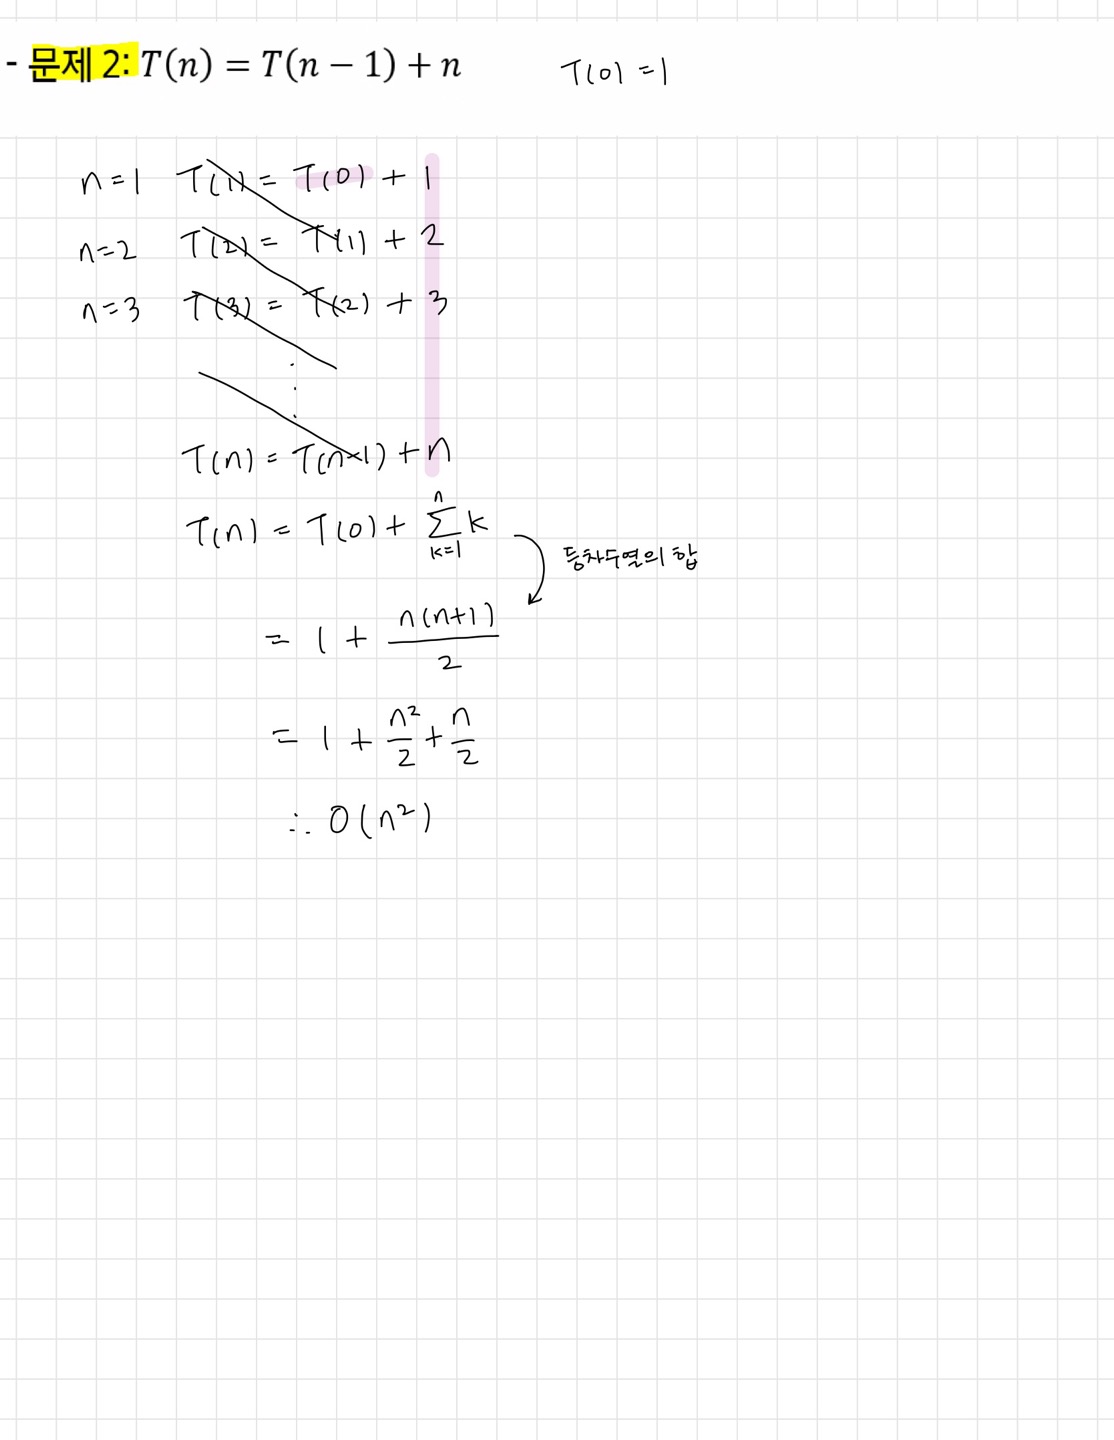 - 문제 2: T(n) = T(n − 1) + n T(0) = 1
n=1 T(1) = T(0) + 1
n=2 T(2) = T(1) + 2
n=3 T(3) = T(2) + 3
⋮
T(n) = T(n-1) + n
T(n) = T(0) + Σ_{k=1}^{n} k
등차수열의 합
= 1 + n(n+1)/2
= 1 + n²/2 + n/2
∴ O(n²)